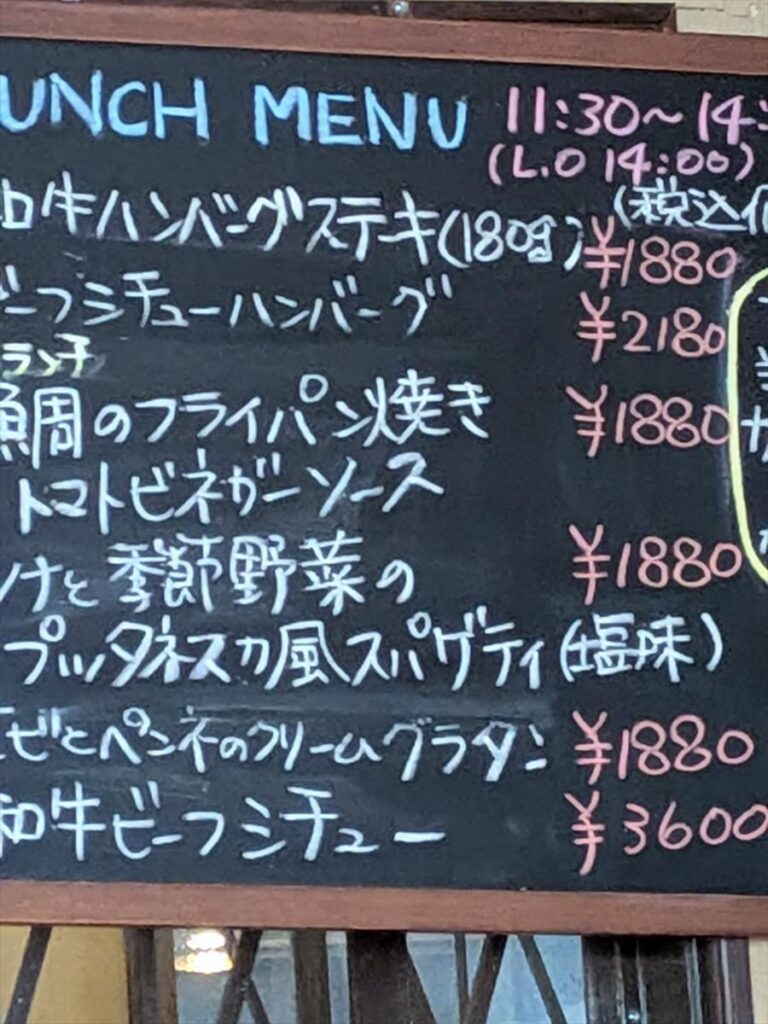 UNCH MENU 11:30～14:
(L.O 14:00)
(税込
和牛ハンバーグステーキ(180g) ¥1880
ビーフシチューハンバーグ ¥2180
ランチ
鯛のフライパン焼き ¥1880
トマトビネガーソース
ナと季節野菜の ¥1880
プッタネスカ風スパゲティ(塩味)
エビとペンネのクリームグラタン ¥1880
和牛ビーフシチュー ¥3600